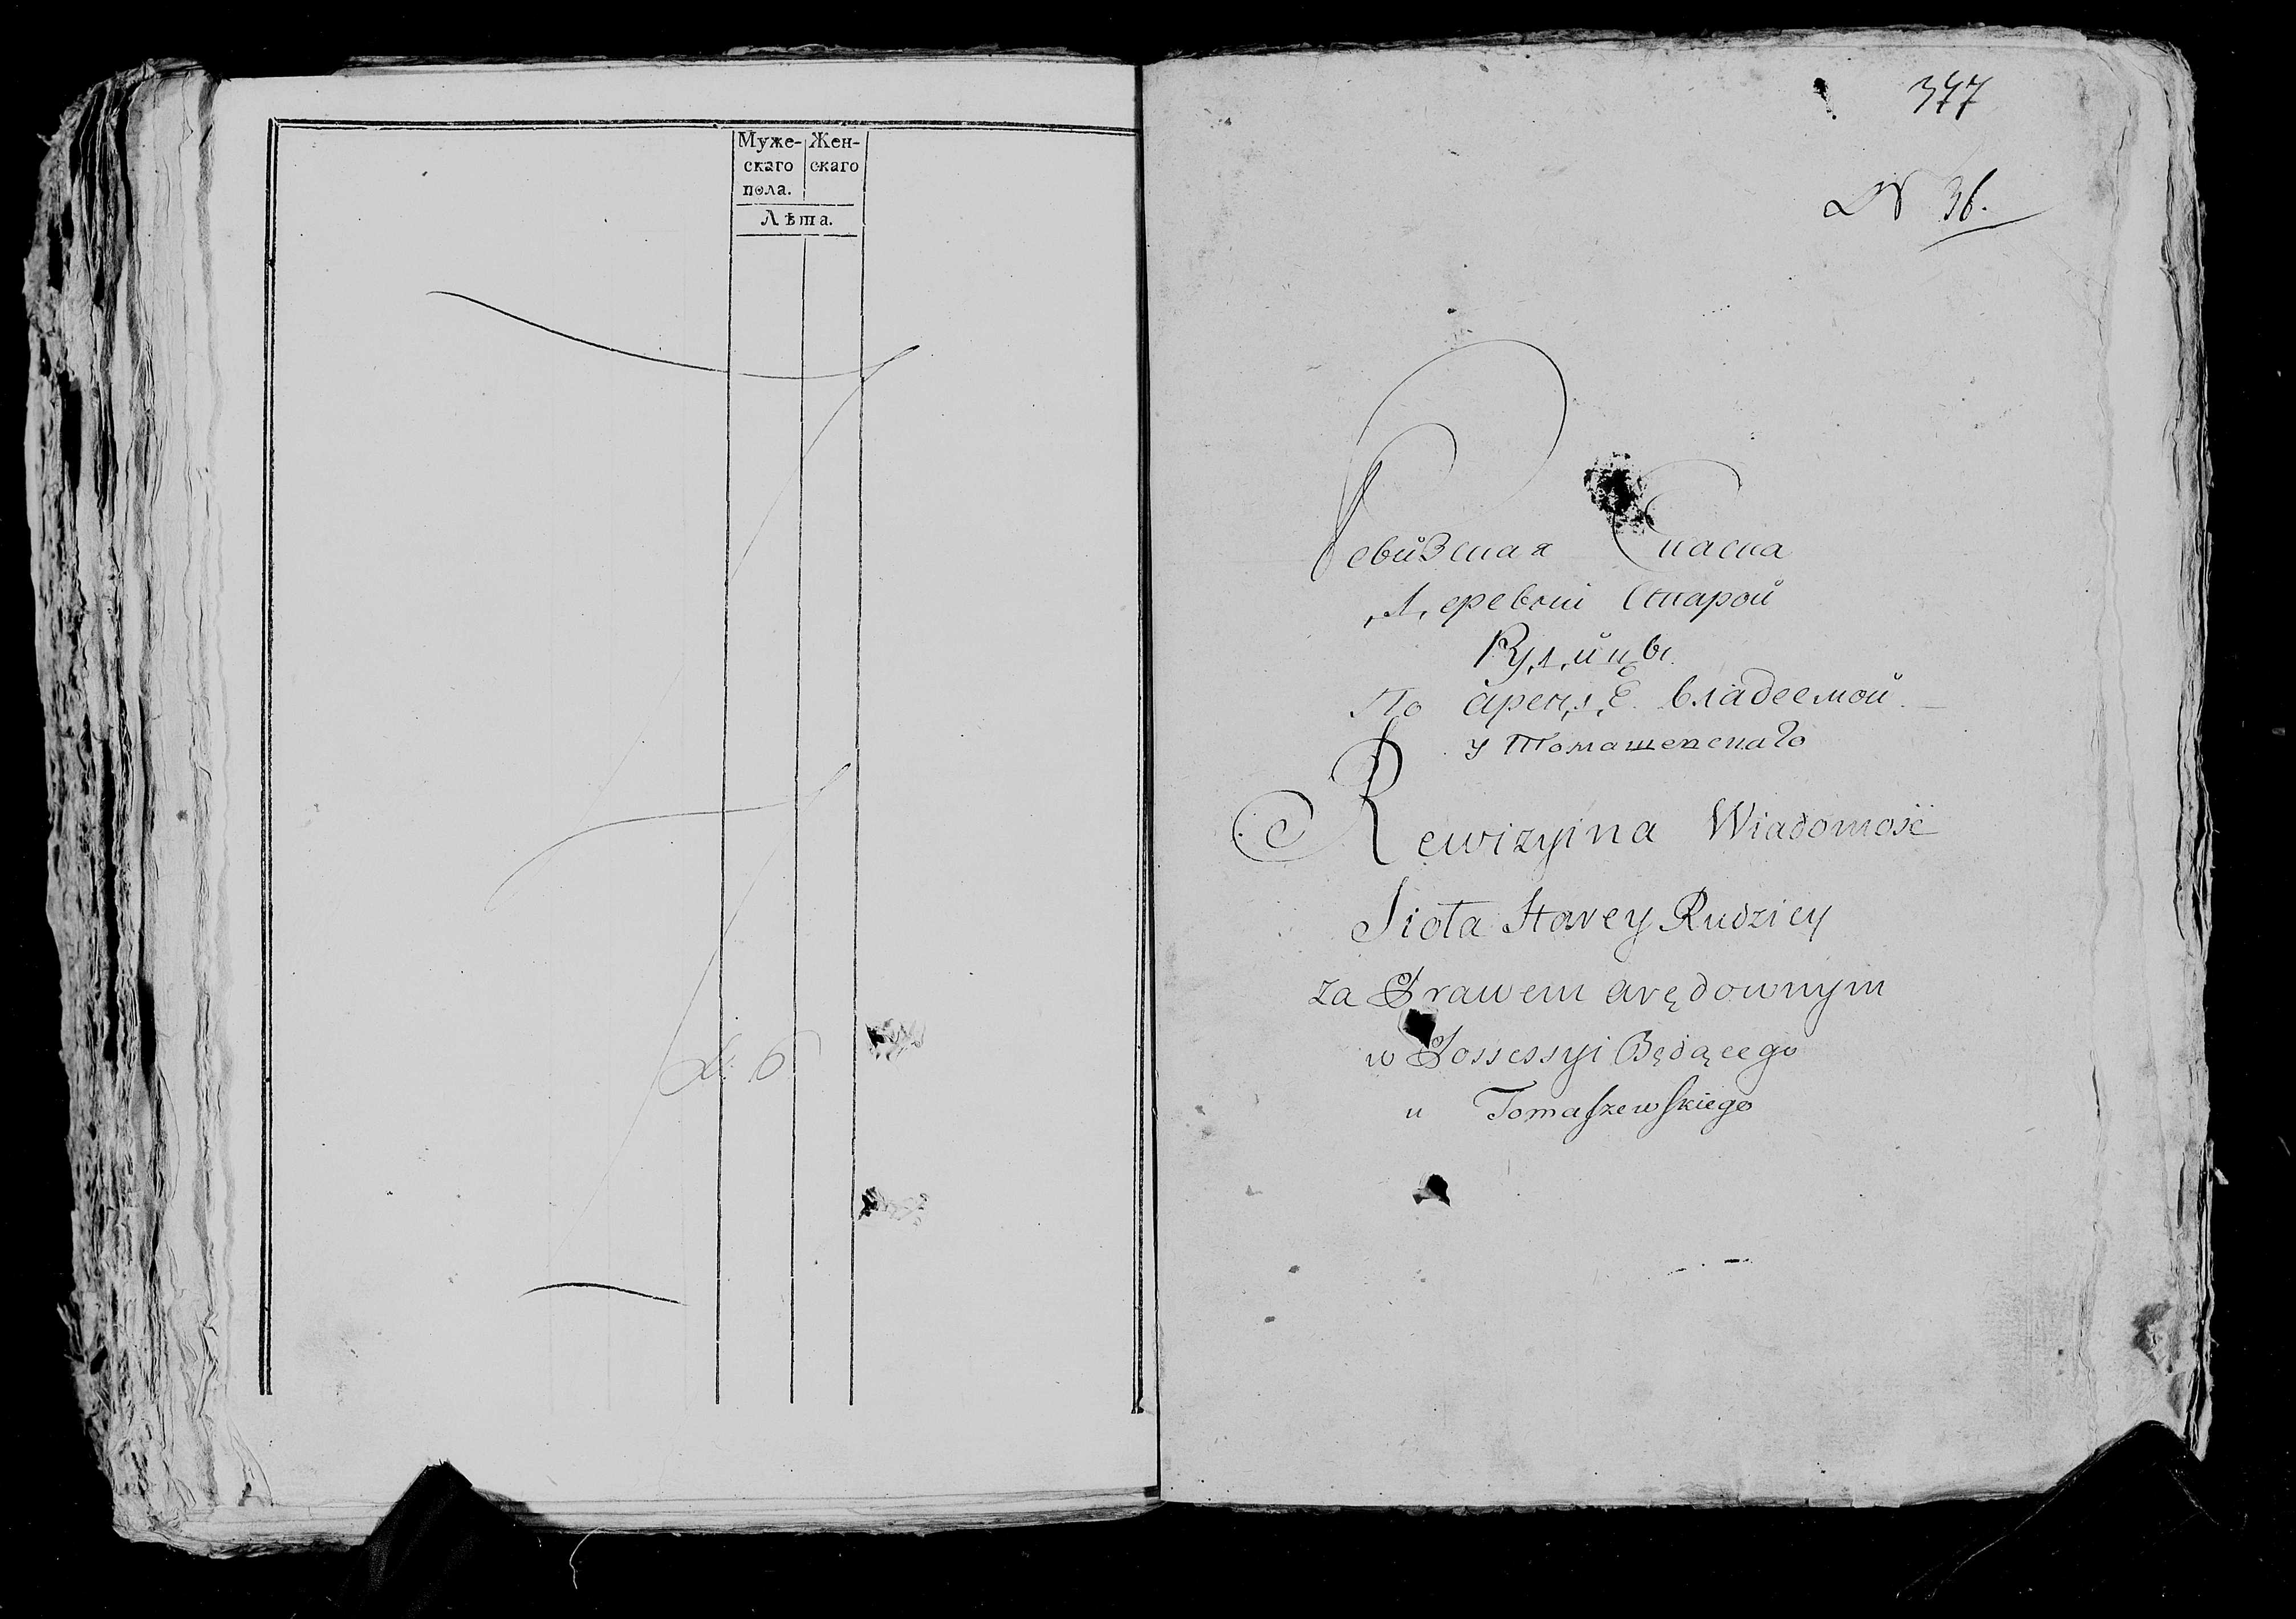 Муже- Жен-
скаго скаго
пола.
Лѣта.
377
№ 36.
Ревизская Скаска
Деревни Старой
Рудицы
По арендѣ владеемой
у Томашевскаго
Rewizyina Wiadomość
Sioła Starey Rudzicy
za Prawem arędownym
w Possessyi Będącego
u Tomaszewskiego